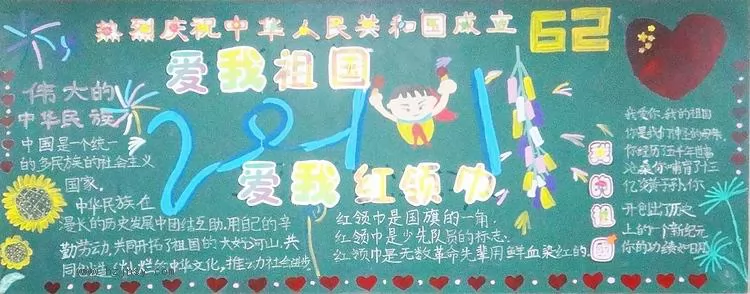 热烈庆祝中华人民共和国成立62
爱我祖国
2011
爱我红领巾
伟大的
中华民族
中国是一个统一
的多民族的社会主义
国家。
中华民族在
漫长的历史发展中团结互助,用自己的辛
勤劳动,共同开拓了祖国的大好河山,共
同创造了灿烂的中华文化,推动力社会进步
红领巾是国旗的一角,
红领巾是少先队员的标志,
红领巾是无数革命先辈用鲜血染红的。
我的祖国
我爱你,我的祖国
你是我们神圣的母亲
你经历五千年世事
是你哺育了十三
亿炎黄子孙,你
开创出历史
上的一个新纪元
你的功绩